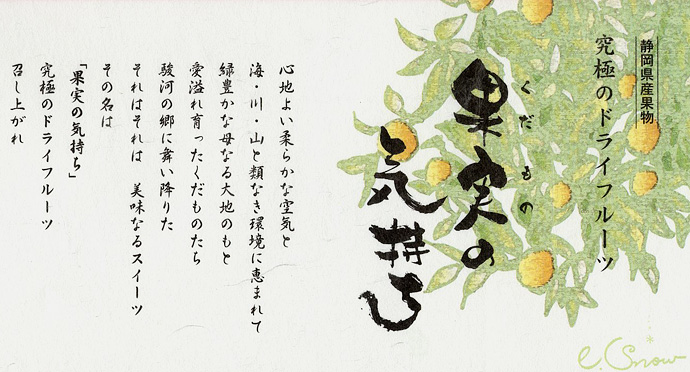 静岡県産果物
究極のドライフルーツ
くだもの
果実の
気持ち
心地よい柔らかな空気と
海・川・山と類なき環境に恵まれて
緑豊かな母なる大地のもと
愛溢れ育ったくだものたち
駿河の郷に舞い降りた
それはそれは 美味なるスイーツ
その名は
「果実の気持ち」
究極のドライフルーツ
召し上がれ
e.Snow